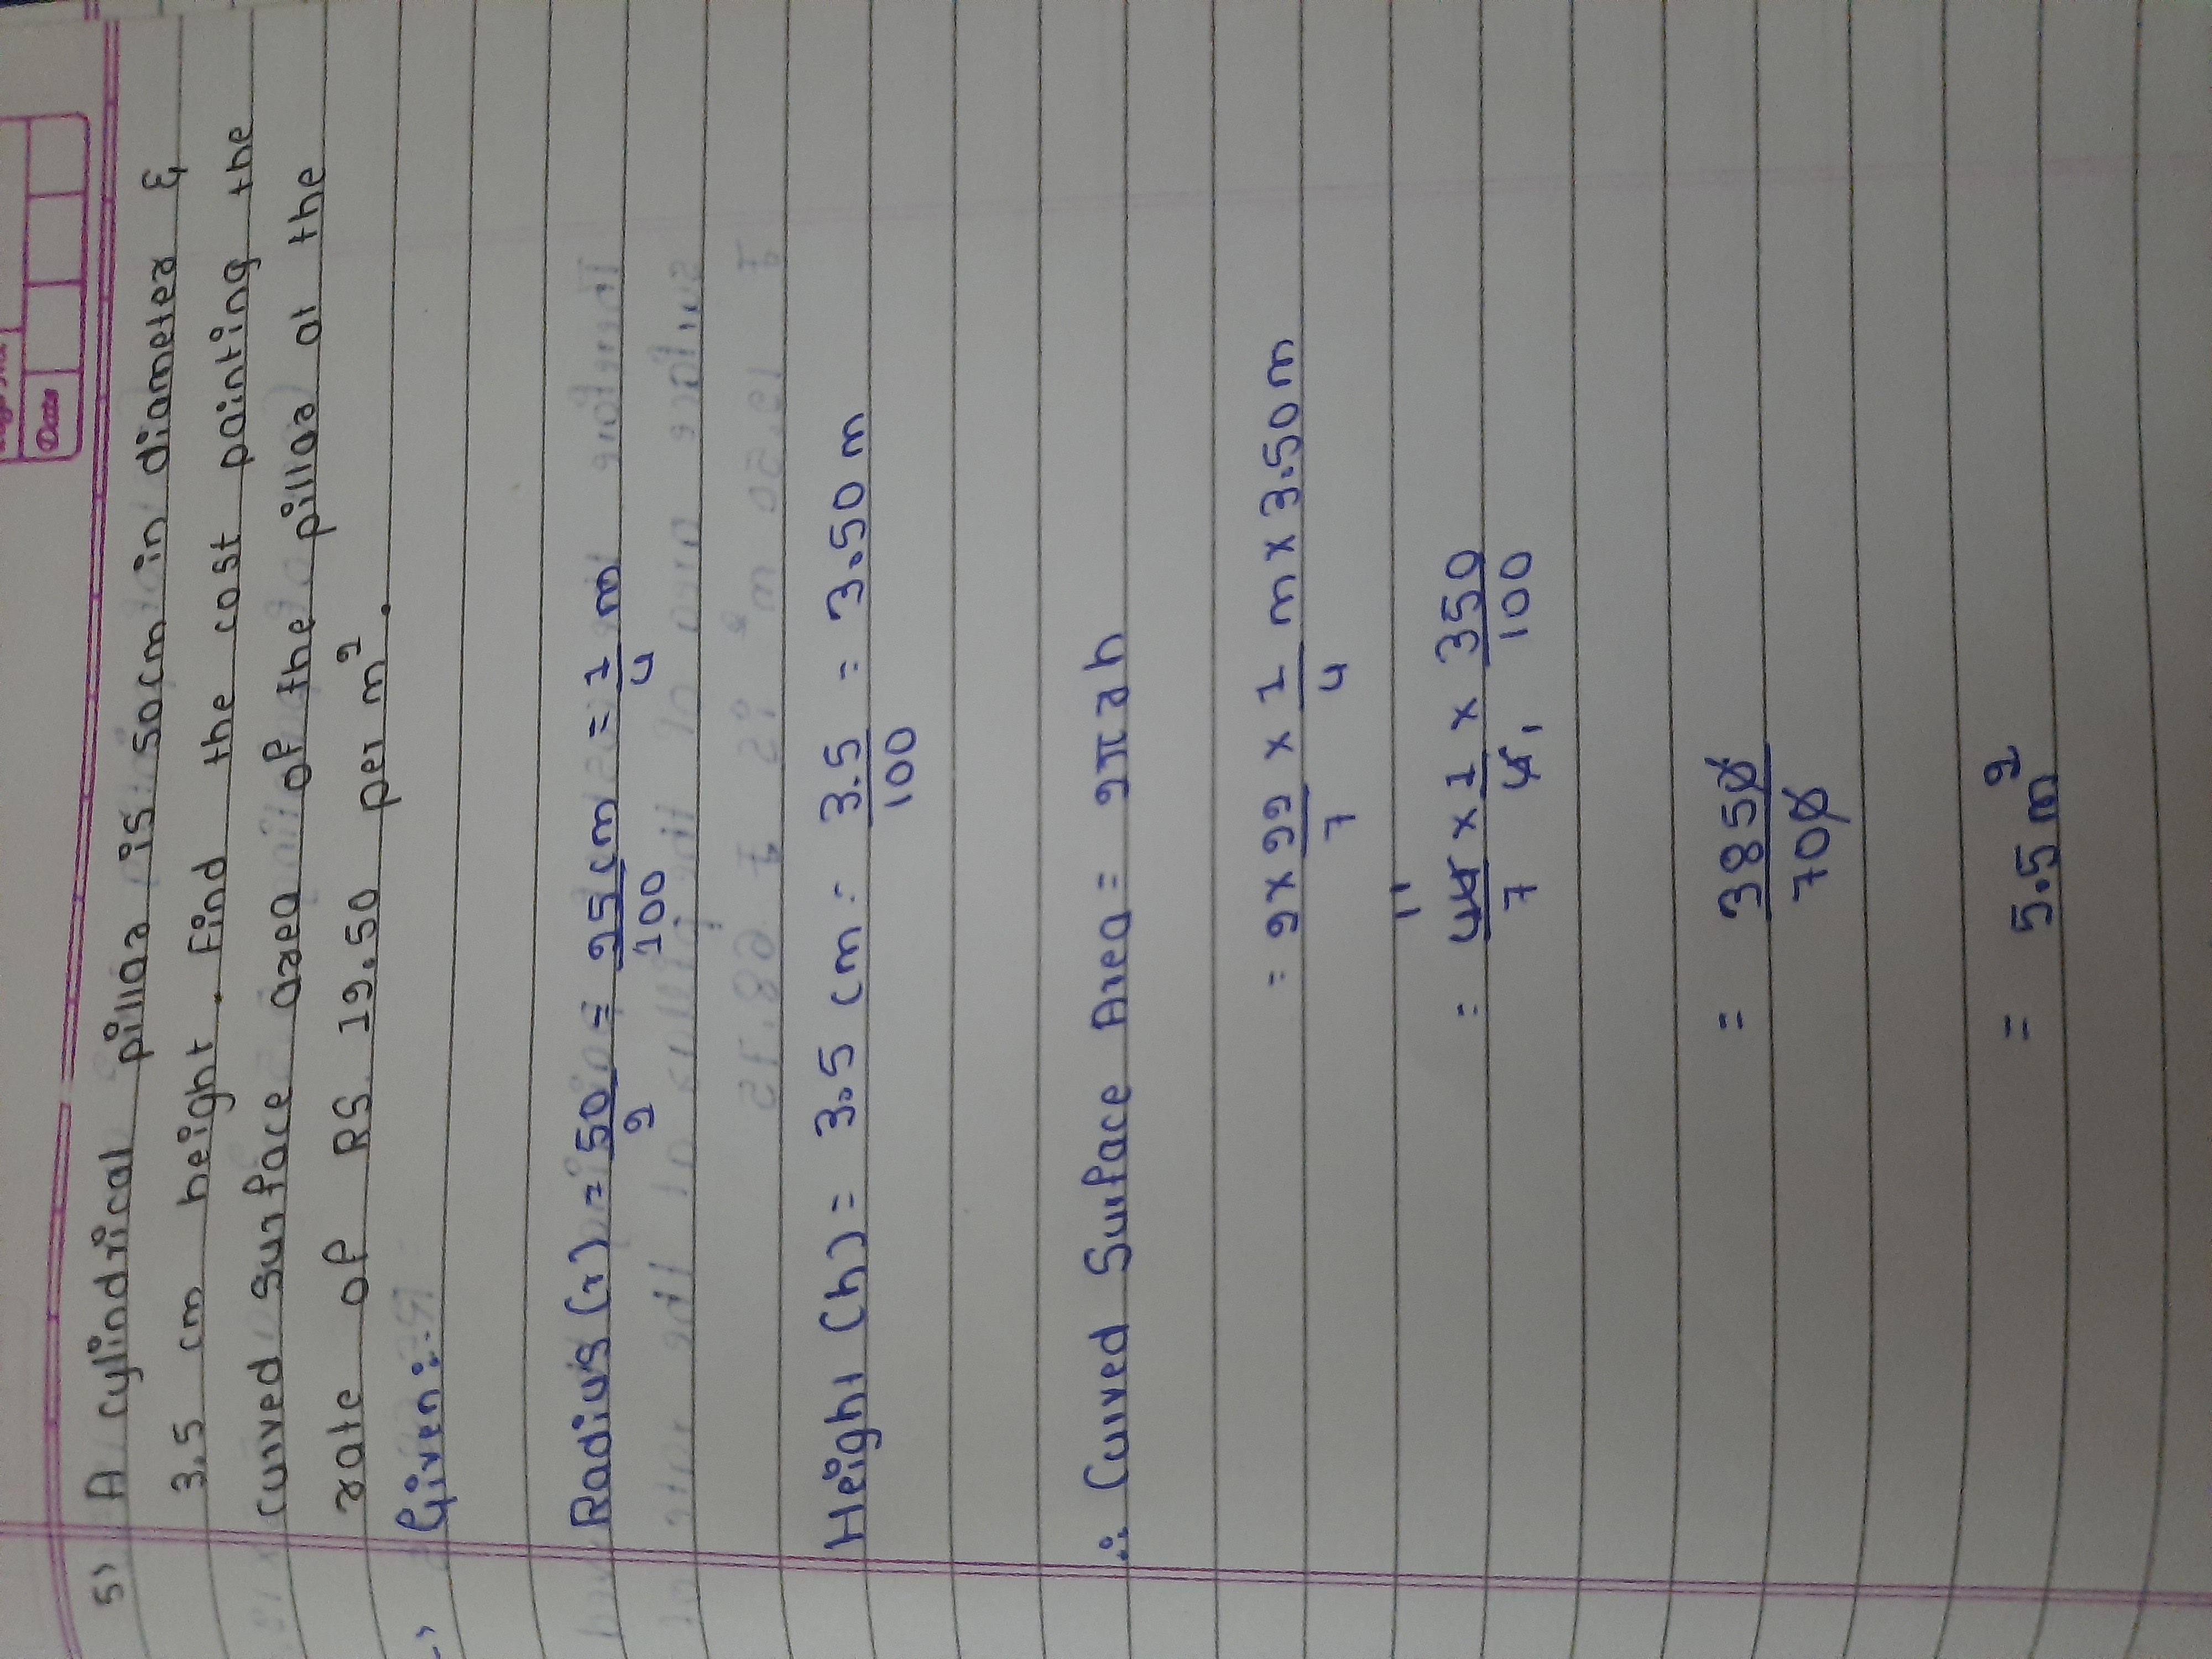 Date
5) A cylindrical pillar is 50cm in diameter &
3.5 cm height. Find the cost painting the
curved surface area of the pillar at the
rate of RS 12.50 per m².
→ Given:-
Radius (r) = 50/2 = 25/100 cm = 1/4 m
Height (h) = 3.5 cm = 3.5/100 = 3.50 m
∴ Curved Surface Area = 2πrh
= 2 x 22/7 x 1/4 m x 3.50 m
11
= 44/7 x 1/4, x 350/100
= 3850/700
= 5.5 m²